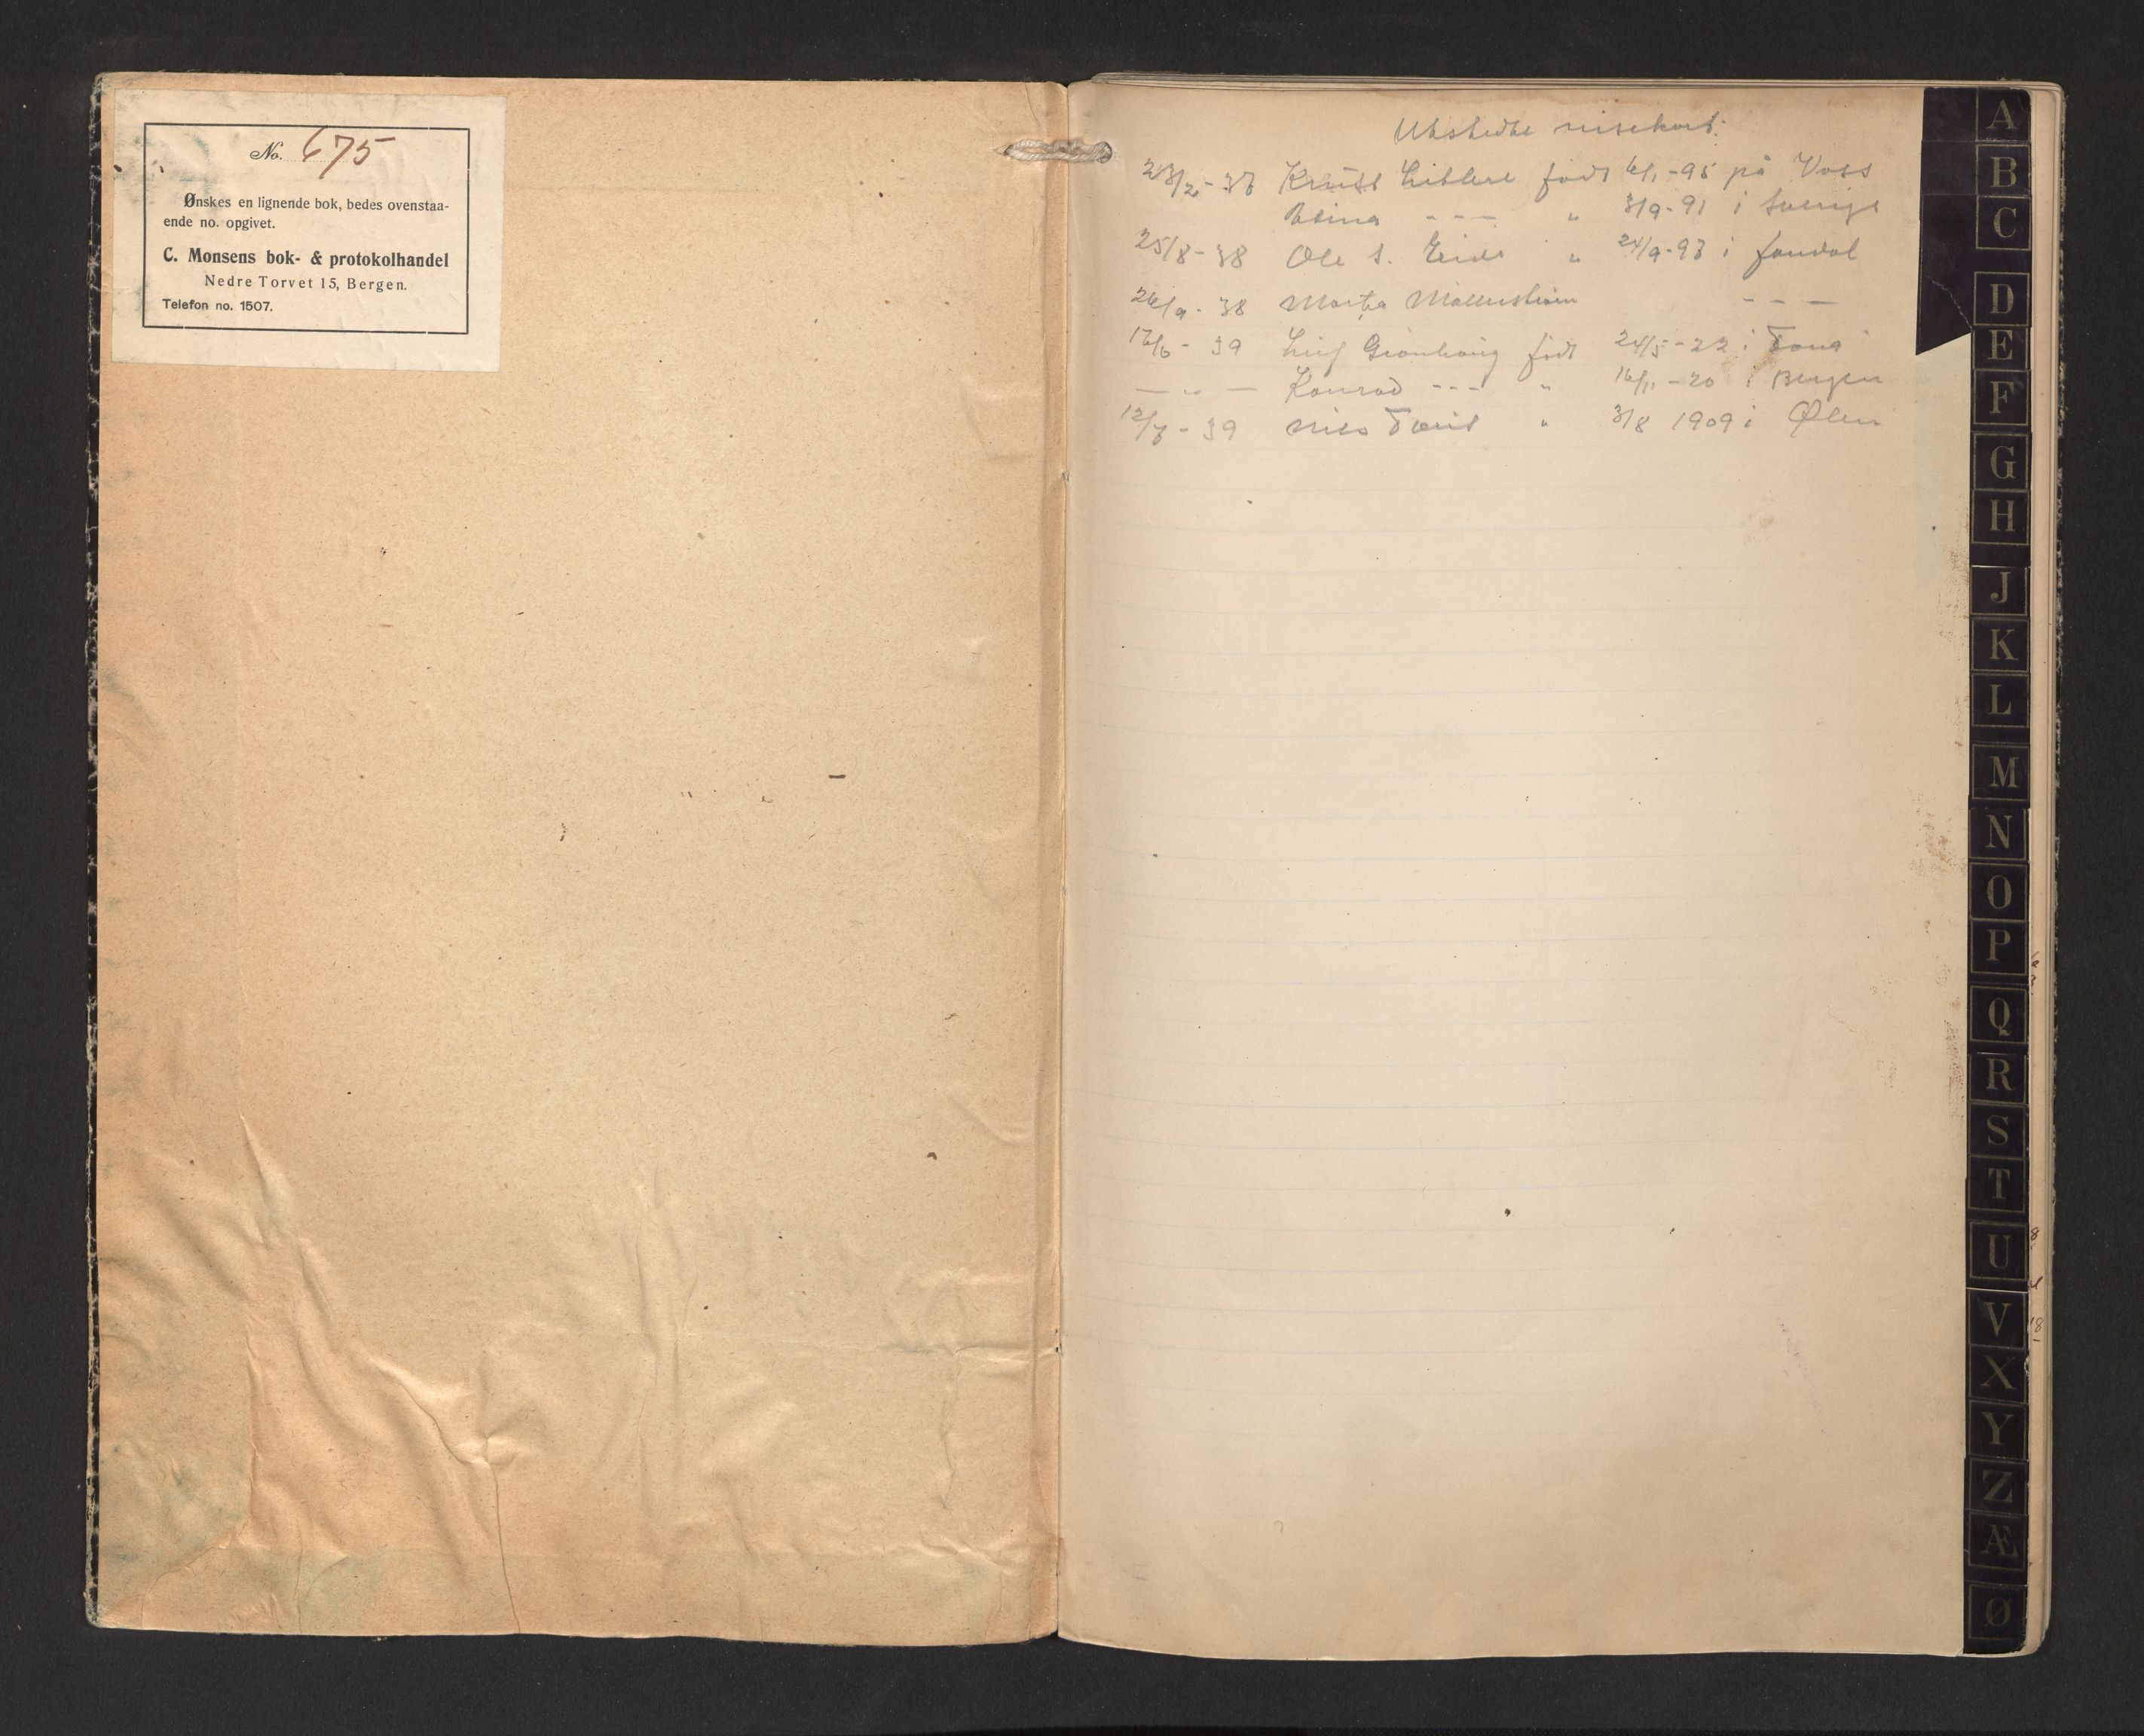 No. 675
Ønskes en lignende bok, bedes ovenstaa-
ende no. opgivet.
C. Monsens bok- & protokolhandel
Nedre Torvet 15, Bergen.
Telefon no. 1507.
Utstedte reisekort:
født 6/1-95 på Voss
- - - " 3/9-91 i Sverige
25/8-38 Ole S. Eide " 24/9-93 i
38 - - -
39 Leif født 24/5-22 i Fana
— " — Konrad - - - " 16/11-20 i Bergen
12/7-39 Nils " 3/8 1909 i Ølen
A
B
C
D
E
F
G
H
J
K
L
M
N
O
P
Q
R
S
T
U
V
X
Y
Z
Æ
Ø